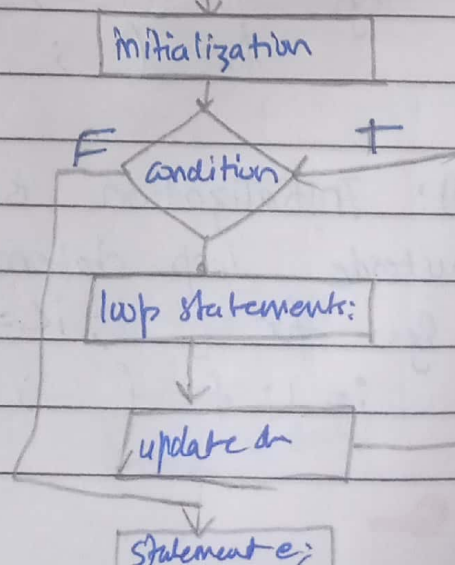 initialization
F
T
condition
loop statements:
update
statement e;